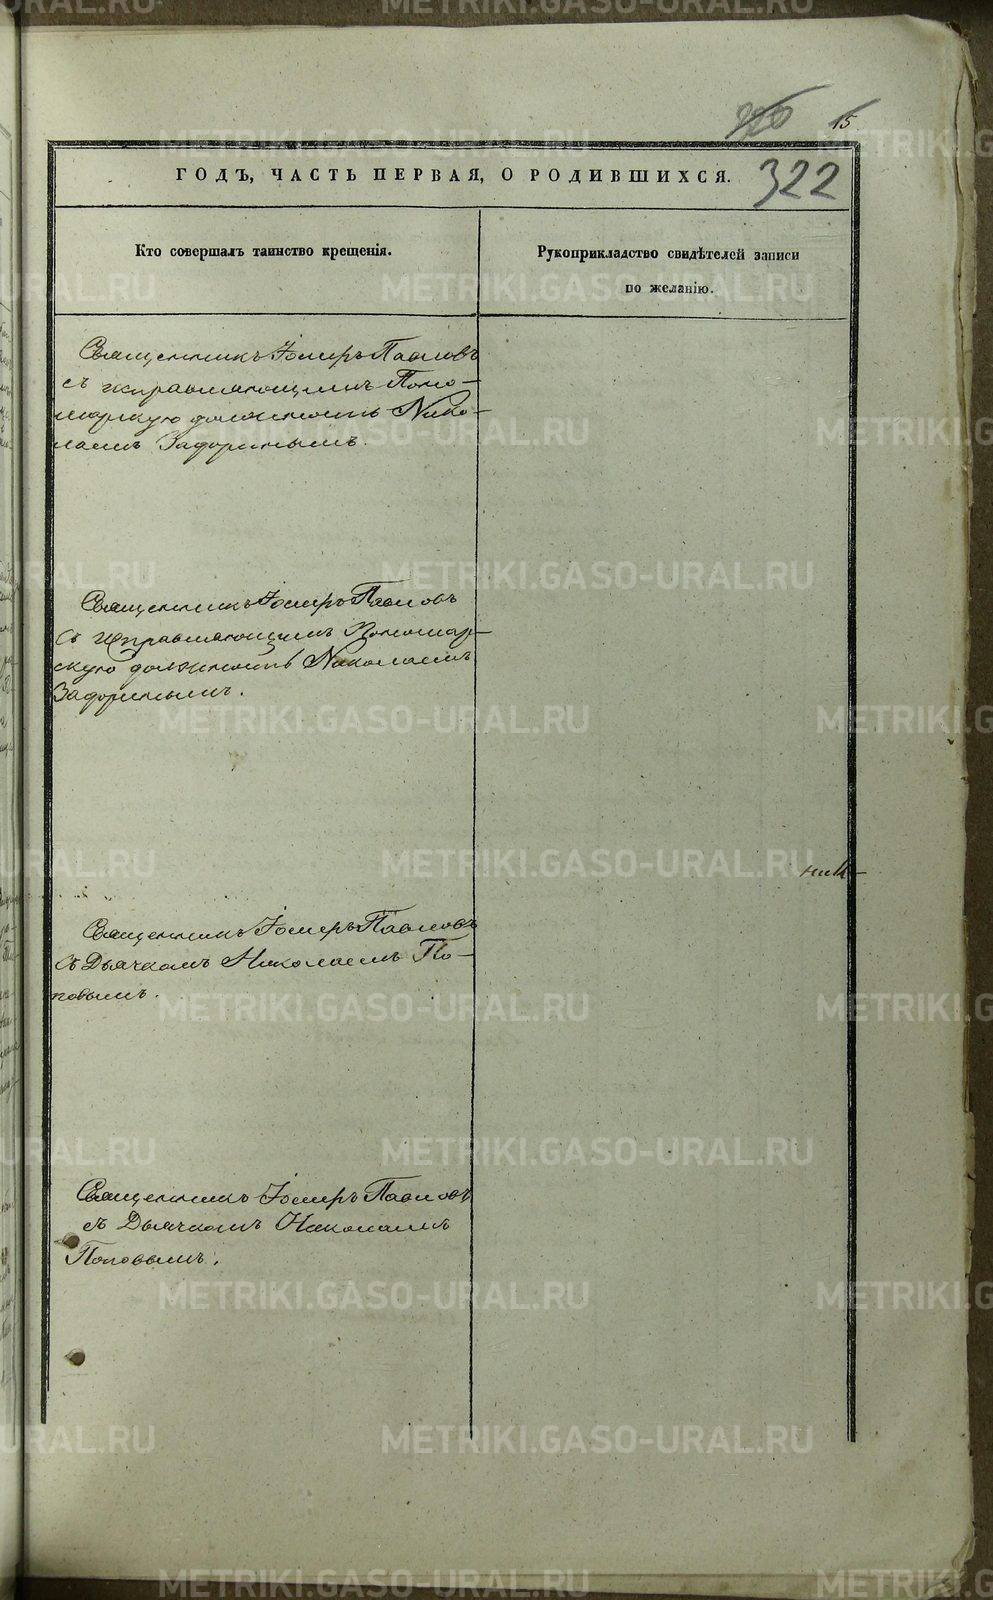 326 15
ГОДЪ, ЧАСТЬ ПЕРВАЯ, О РОДИВШИХСЯ. 322
Кто совершалъ таинство крещенія.
Рукоприкладство свидѣтелей записи
по желанію.
Священникъ Іосифъ Павловъ
съ исправляющимъ Поно-
марскую должность Нико-
лаемъ Задоринымъ.
Священникъ Іосифъ Павловъ
съ исправляющимъ Пономар-
скую должность Николаемъ
Задоринымъ.
Священникъ Іосифъ Павловъ
съ Дьячкомъ Николаемъ По-
повымъ.
Священникъ Іосифъ Павловъ
съ Дьячкомъ Николаемъ
Поповымъ.
METRIKI.GASO-URAL.RU